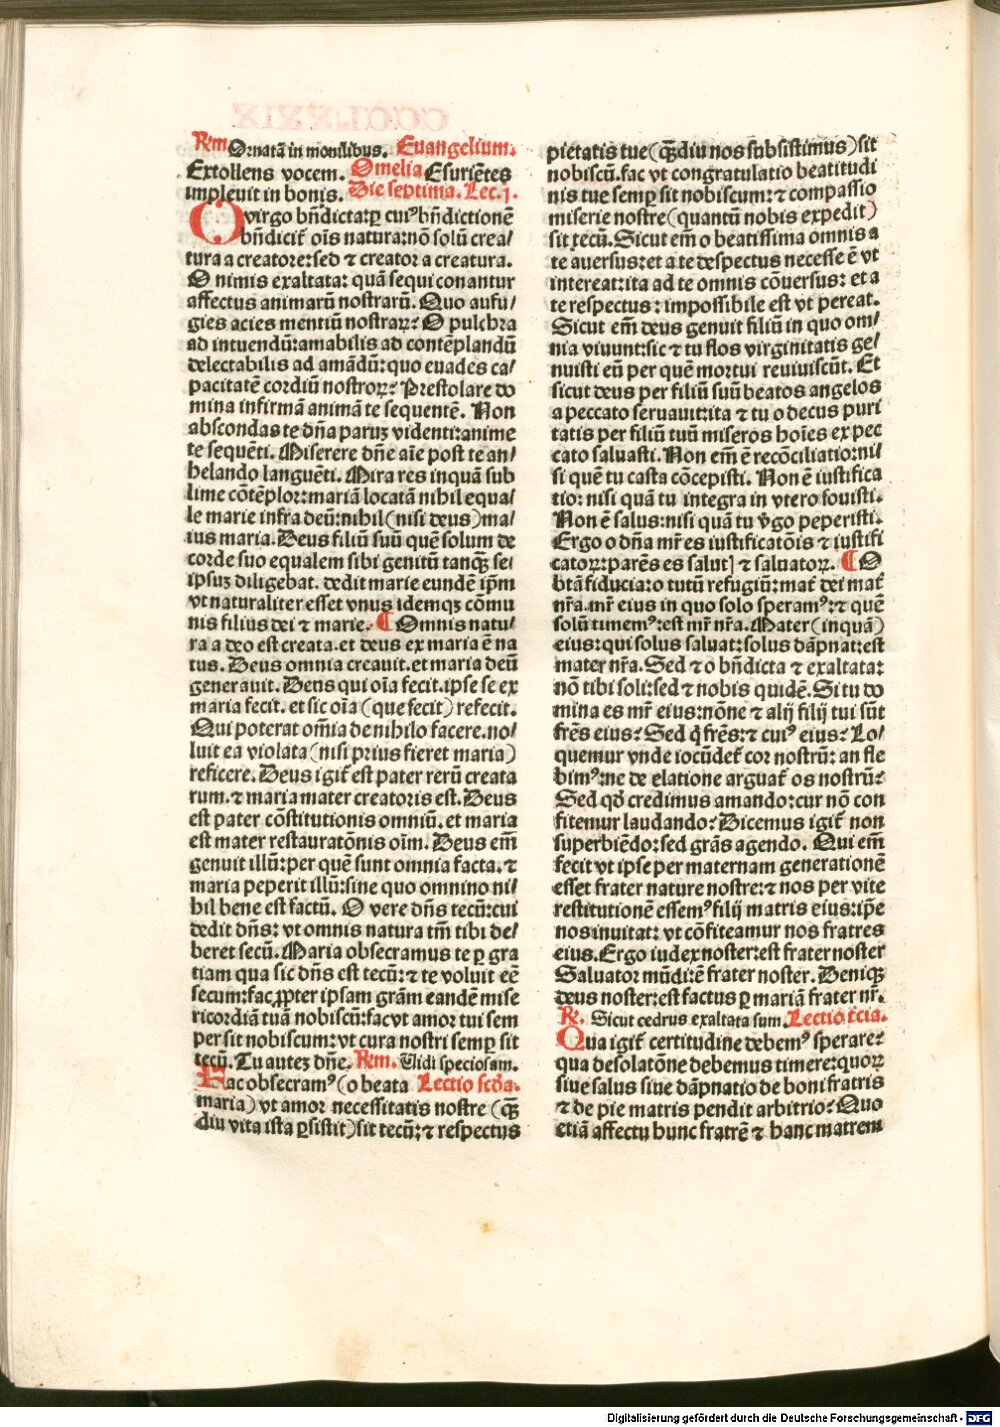 Rm̄ Ornatā in monilibus. Euangelium.
Extollens vocem. Omelia Esuriētes
impleuit in bonis. Die septima. Lec. j.
O virgo bn̄dicta: ꝑ cuiꝰ bn̄dictionē
bn̄dicit̄ oīs natura: nō solū crea/
tura a creatore: sed ⁊ creator a creatura.
O nimis exaltata: quā sequi conantur
affectus animarū nostrarū. Quo aufu/
gies acies mentiū nostraꝝ? O pulchra
ad intuendū: amabilis ad contēplandū
delectabilis ad amādū: quo euades ca/
pacitatē cordiū nostroꝝ? Prestolare do
mina infirmā animā te sequentē. Non
abscondas te dn̄a paruꝫ videnti: anime
te sequēti. Miserere dn̄e aīe post te an/
helando languēti. Mira res inquā sub
lime cōtēplor: mariā locatā nihil equa/
le marie infra deū: nihil (nisi deus) ma/
ius maria. Deus filiū suū quē solum de
corde suo equalem sibi genitū tanqꝫ sei
ipsuꝫ diligebat. dedit marie eundē ip̄m
vt naturaliter esset vnus idemqꝫ cōmu
nis filius dei ⁊ marie. ¶ Omnis natu/
ra a deo est creata. et deus ex maria ē na
tus. Deus omnia creauit. et maria deū
generauit. Deus qui oīa fecit. ipse se ex
maria fecit. et sic oīa (que fecit) refecit.
Qui poterat om̄ia de nihilo facere. no/
luit ea violata (nisi prius fieret maria)
reficere. Deus igit̄ est pater rerū creata
rum. ⁊ maria mater creatoris est. Deus
est pater cōstitutionis omniū. et maria
est mater restauratōnis oīm. Deus em̄
genuit illū: per quē sunt omnia facta. ⁊
maria peperit illū: sine quo omnino ni/
hil bene est factū. O vere dn̄s tecū: cui
dedit dn̄s: vt omnis natura tm̄ tibi de/
beret secū. Maria obsecramus te ꝑ gra
tiam qua sic dn̄s est tecū: ⁊ te voluit eē
secum: fac ꝓpter ipsam grām eandē mise
ricordiā tuā nobiscū: fac vt amor tui sem
per sit nobiscum: vt cura nostri semꝑ sit
tecū. Tu auteꝫ dn̄e. Rm̄. Vidi speciosam.
Fac obsecramꝰ (o beata Lectio scd̄a.
maria) vt amor necessitatis nostre (qꝫ̄
diu vita ista ꝑsistit) sit tecū: ⁊ respectus
pietatis tue (qꝫ̄diu nos subsistimus) sit
nobiscū. fac vt congratulatio beatitudi
nis tue semꝑ sit nobiscum: ⁊ compassio
miserie nostre (quantū nobis expedit)
sit tecū. Sicut em̄ o beatissima omnis a
te auersus: et a te despectus necesse ē vt
intereat: ita ad te omnis cōuersus: et a
te respectus: impossibile est vt pereat.
Sicut em̄ deus genuit filiū in quo om/
nia viuunt: sic ⁊ tu flos virginitatis ge/
nuisti eū per quē mortui reuiuiscūt. Et
sicut deus per filiū suū beatos angelos
a peccato seruauit: ita ⁊ tu o decus puri
tatis per filiū tuū miseros hoīes ex pec
cato saluasti. Non em̄ ē recōciliatio: ni/
si quē tu casta cōcepisti. Non ē iustifica
tio: nisi quā tu integra in vtero fouisti.
Non ē salus: nisi quā tu v̄go peperisti.
Ergo o dn̄a mr̄ es iustificatōis ⁊ iustifi
catoꝝ: parēs es salutꝭ ⁊ saluatoꝝ. ¶ O
btā fiducia: o tutū refugiū: mat̄ dei mat̄
nr̄a. mr̄ eius in quo solo speramꝰ: ⁊ quē
solū timemꝰ: est mr̄ nr̄a. Mater (inquā)
eius: qui solus saluat: solus dāpnat: est
mater nr̄a. Sed ⁊ o bn̄dicta ⁊ exaltata:
nō tibi soli: sed ⁊ nobis quidē. Si tu do
mina es mr̄ eius: nōne ⁊ alij filij tui sūt
frēs eius? Sed q̄ frēs: ⁊ cuiꝰ eius? Lo/
quemur vnde iocūdet̄ cor nostrū: an fle
bimꝰ: ne de elatione arguat̄ os nostrū?
Sed qd̄ credimus amando: cur nō con
fitemur laudando? Dicemus igit̄ non
superbiēdo: sed grās agendo. Qui em̄
fecit vt ipse per maternam generationē
esset frater nature nostre: ⁊ nos per vite
restitutionē essemꝰ filij matris eius: ip̄e
nos inuitat: vt cōfiteamur nos fratres
eius. Ergo iudex noster: est frater noster
Saluator mūdi: ē frater noster. Deniqꝫ
deus noster: est factus ꝑ mariā frater nr̄.
R̄. Sicut cedrus exaltata sum. Lectio t̄cia.
Qua igit̄ certitudine debemꝰ sperare?
qua desolatōne debemus timere: quoꝝ
siue salus siue dāpnatio de boni fratris
⁊ de pie matris pendit arbitrio? Quo
etiā affectu hunc fratrē ⁊ hanc matrem
Digitalisierung gefördert durch die Deutsche Forschungsgemeinschaft - DFG